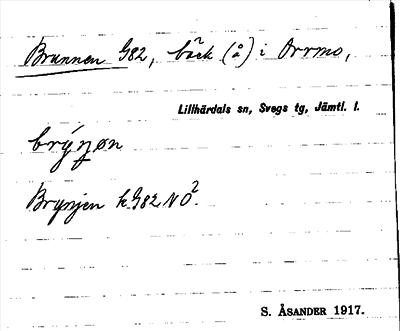 Brunnen G82, bäck (å) i Orrmo,
Lillhärdals sn, Svegs tg, Jämtl. l.
brýŋøn
Brynjen k G82 NÖ².
S. ÅSANDER 1917.